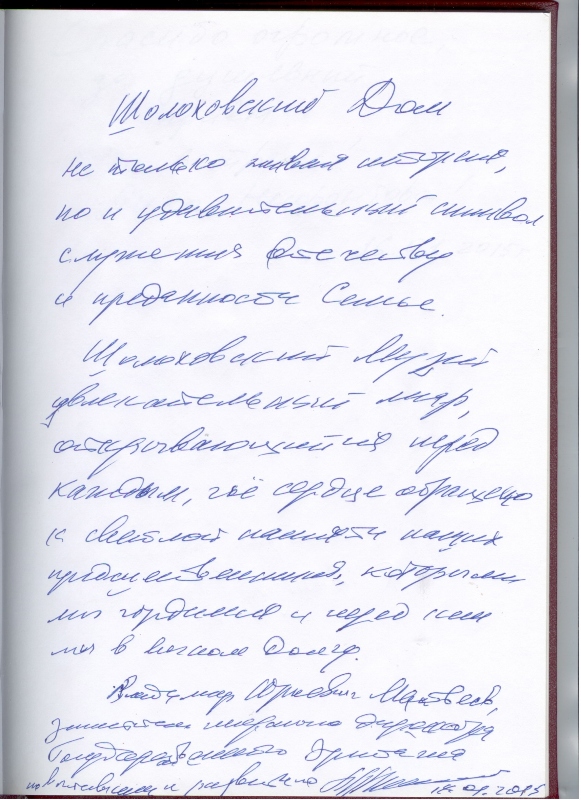 Шолоховский Дом
не только живая история,
но и удивительный символ
служения Отечеству
и преданности Семье.
Шолоховский Музей
увлекательный мир,
открывающийся перед
каждым, чьё сердце обращено
к светлой памяти наших
предшественников, которыми
мы гордимся и перед кем
мы в вечном долгу.
Владимир Юрьевич Матвеев,
заместитель генерального директора
Государственного Эрмитажа
по выставкам и развитию 14.09.2015